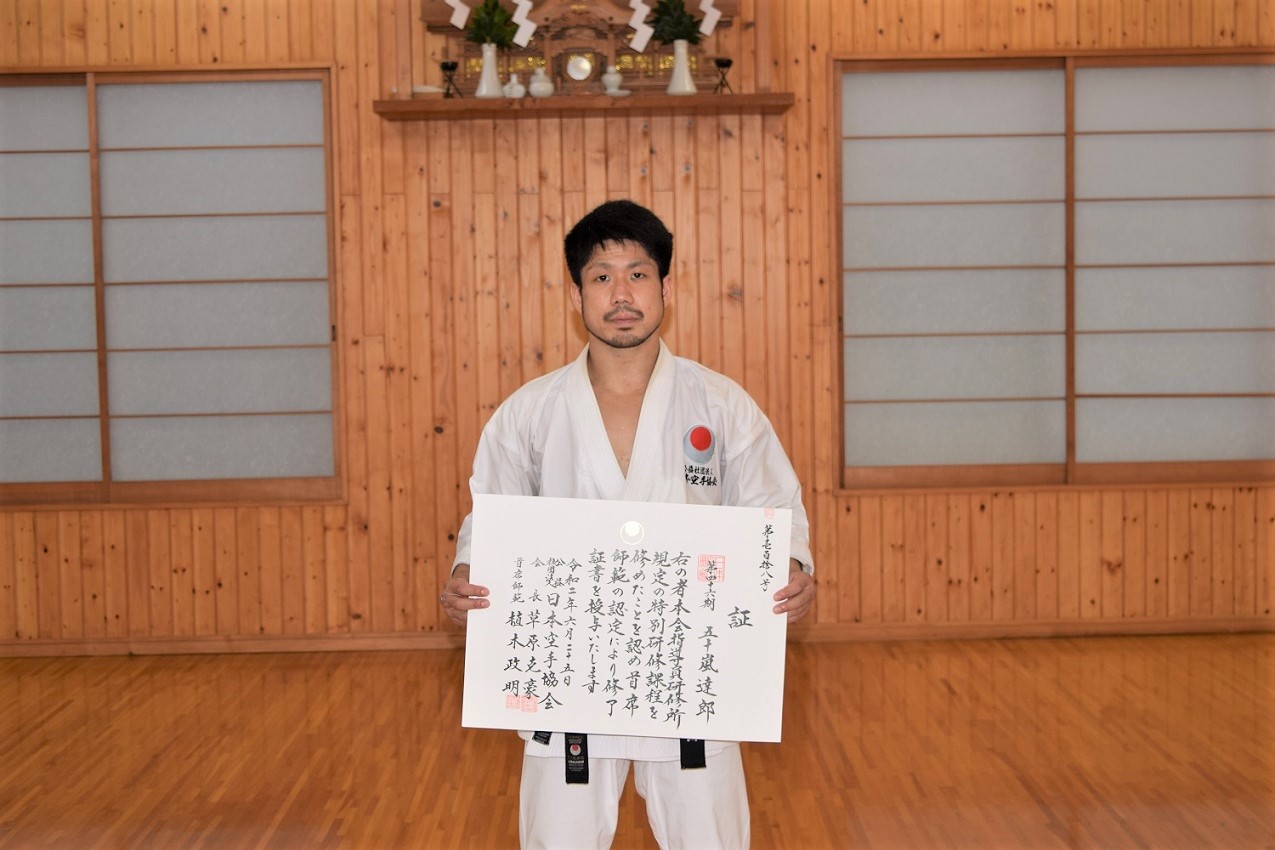 第壱百拾八号
証
第四十六期 五十嵐達郎
右の者本会指導員研修所
規定の特別研修課程を
修めたことを認め首席
師範の認定により修了
証書を授与いたします
令和二年六月二十五日
公益社団法人 日本空手協会
会長 草原克豪
首席師範 植木政明
公益社団法人
日本空手協会